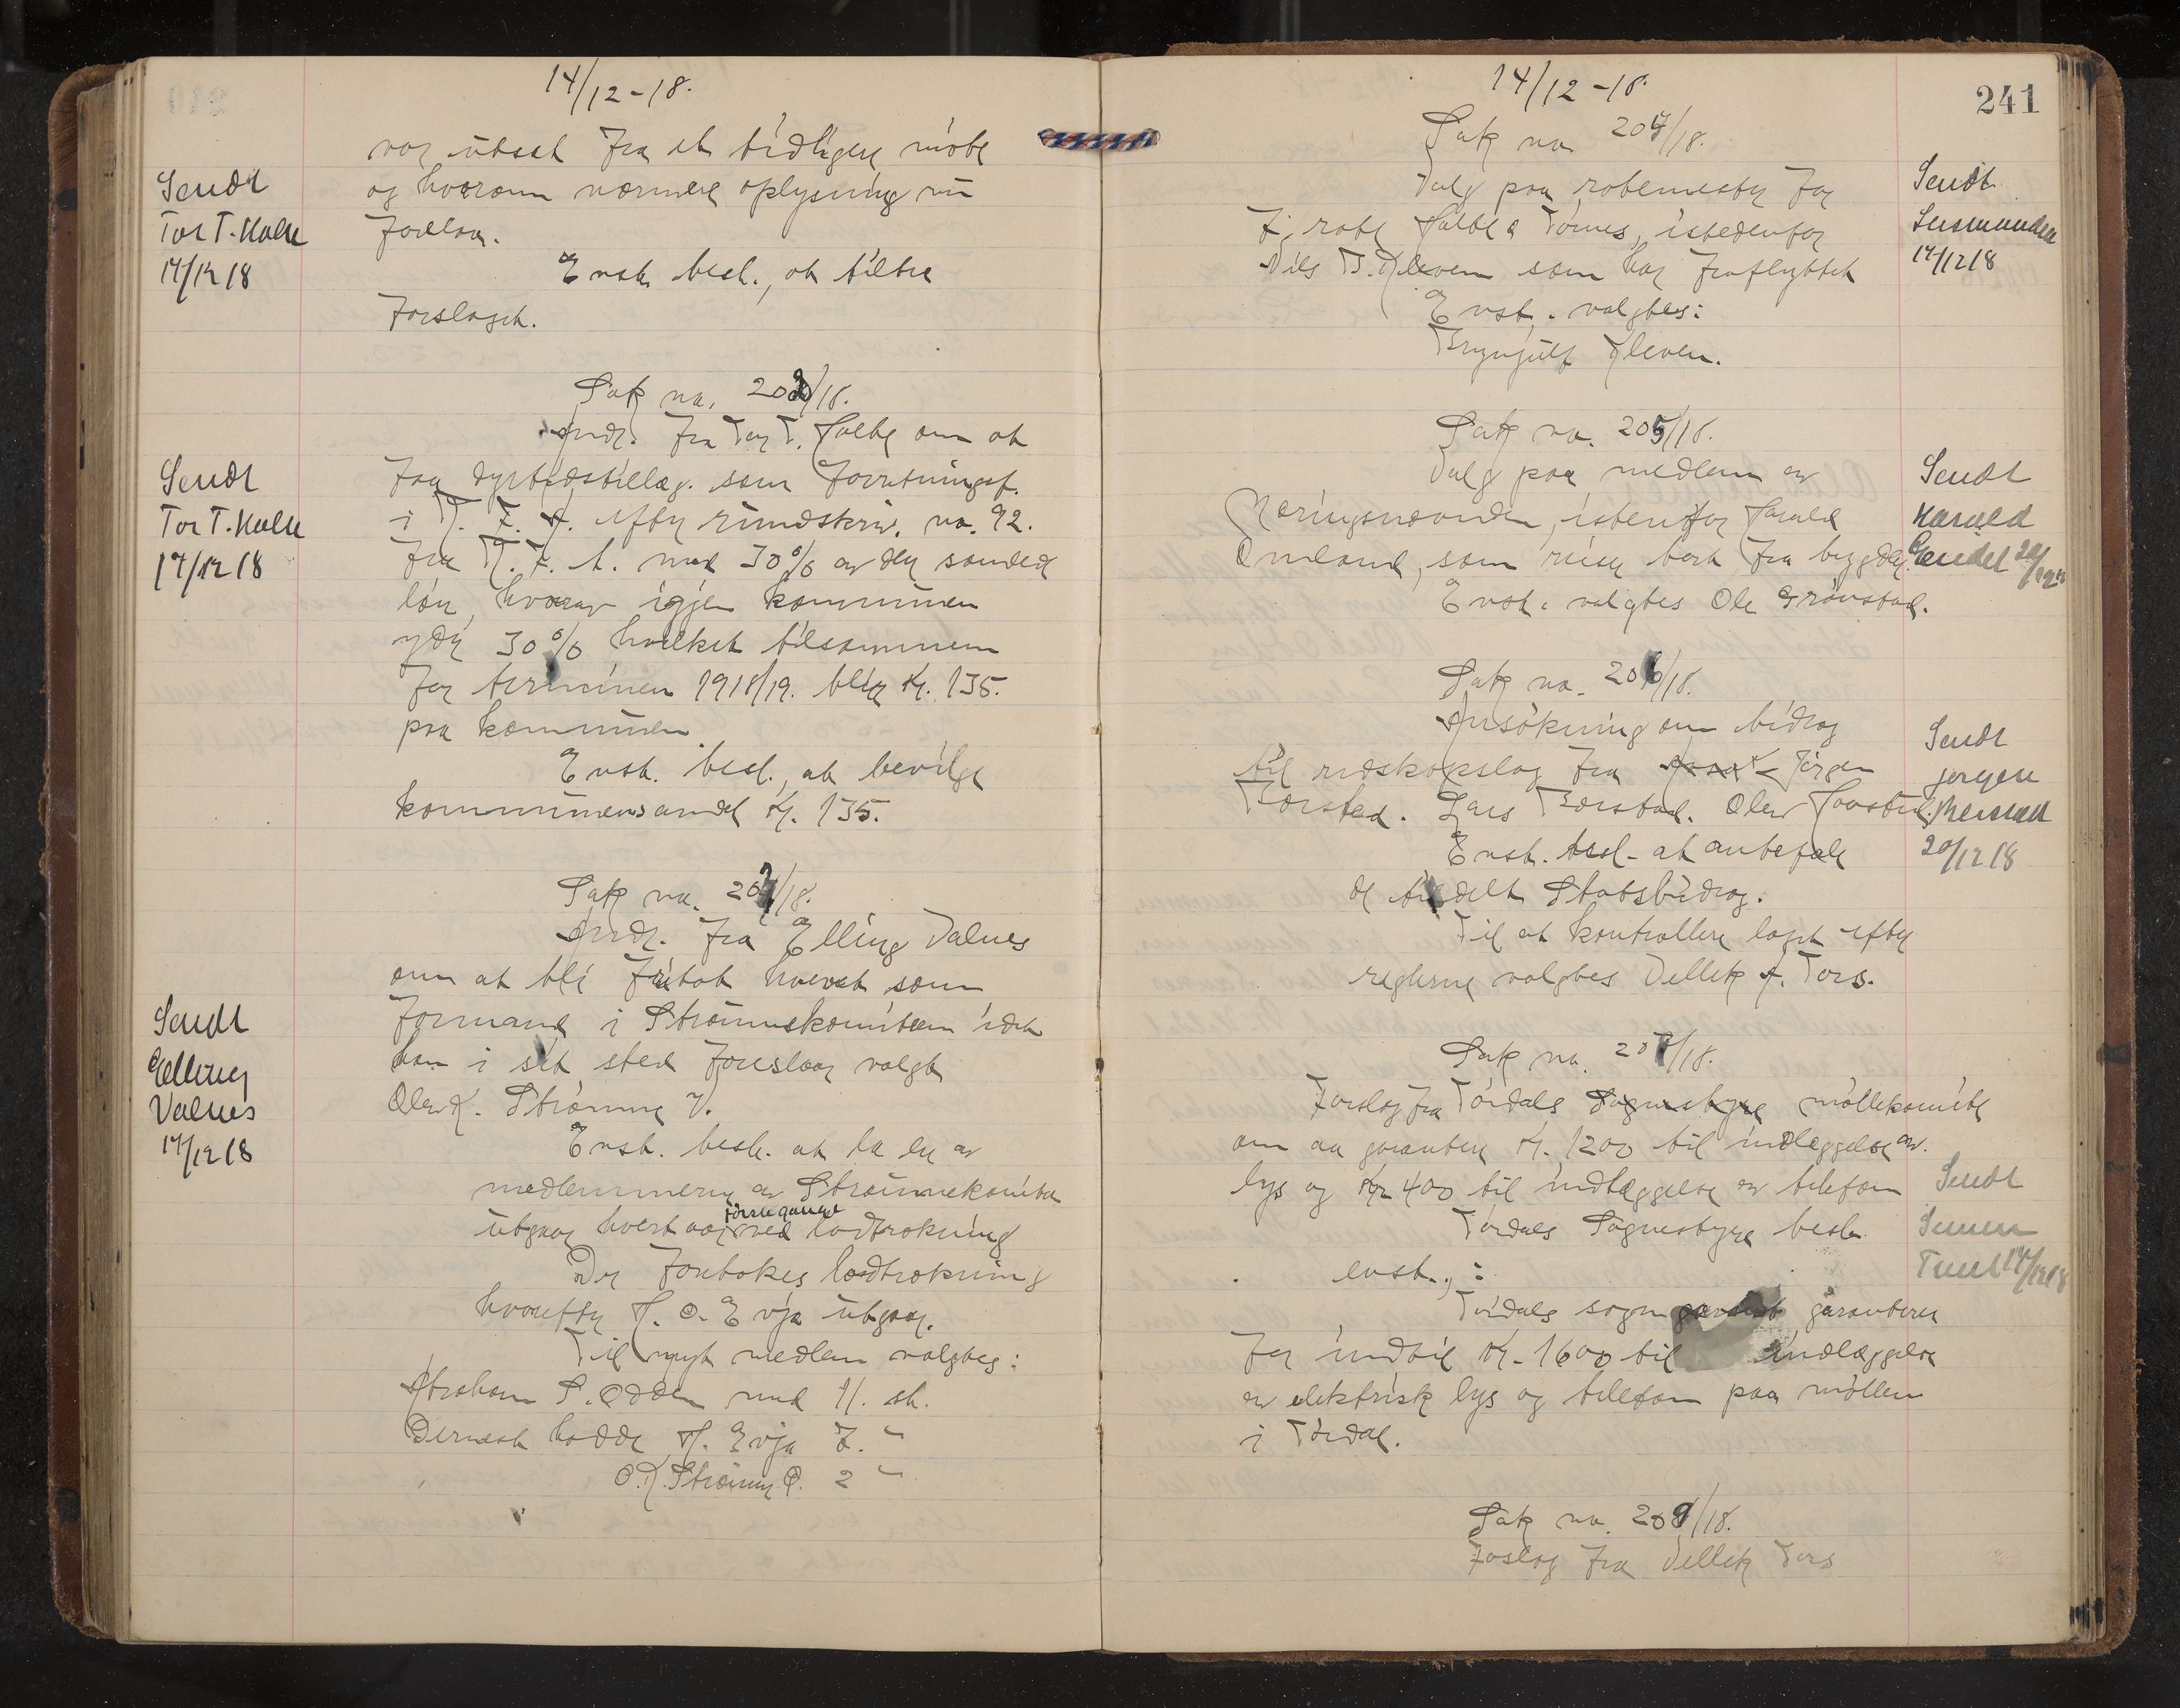 14/12-18.
var utsat fra et tidligere møte
og hvorom nærmere oplysning nu
forelaa.
Enst. besl., at tiltre
forslaget.
Sendt
Tor T. Holte
17/12 18
Sak no. 202/18.
Andr. fra Tor T. Holte om at
faa dyrtidstillæg. som forretningsf.
i K. F. A. efter rundskriv. no. 92.
fra R. F. A. med 30% av den samlede
løn, hvorav igjen kommunen
yder 30% hvilket tilsammen
for terminen 1918/19. blir Kr. 135.
paa kommunen.
Enst. besl., at bevilge
kommunens andel Kr. 135.
Sendt
Tor T. Holte
17/12 18
Sak no. 203/18.
Andr. fra Elling Valnes
om at bli fritat hvervet som
formand i Strømmekomiteen idet
han i sit sted foreslaar valgt
Olav K. Strømme
Enst. besl. at la en av
medlemmerne av Strømmekomiteen
utgaar hvert aar første gange ved lodtrækning
Der foretokes lodtrækning
hvorefter H. O. Evja utgaar.
Til nyt medlem valgtes:
Abraham S. Odden med 11. st.
Dernæst hadde H. Evja 7. "
O. K. Strømme 2 "
Sendt
Elling
Valnes
17/12 18
241
14/12-18.
Sak no 204/18.
Valg paa rodemester for
7. rode Holte & Tørnes, istedenfor
Nils B. Kleven som har fraflyttet
Enst. valgtes:
Brynjulf Kleven.
Sendt
Lensmanden
17/12 18
Sak no. 205/18.
Valg paa medlem av
Næringsnævnden, istenfor Harald
Omland, som reiser bort fra bygden.
Enst. valgtes Ole Grøvstad.
Sendt
Harald
Sak no. 206/18.
Ansøkning om bidrag
til redskapslag fra Jørgen
Børstad. Lars Børstad. Olav
Enst. besl. at anbefale
de tildelt Statsbidrag.
Til at kontrollere laget efter
reglerne valgtes Vellek A. Tors.
Sendt
Jørgen
Børstad
20/12 18
Sak no. 207/18.
Forslag fra Tørdals Sognestyre møllekomite
om aa garantere Kr. 1200 til indlæggelse av.
lys og Kr 400 til indlæggelse av telefon
Tørdals Sognestyre besl.
enst.,:
Tørdals sogn garanterer
for indtil Kr. 1600 til indlæggelse
av elektrisk lys og telefon paa møllen
i Tørdal.
Sendt
Sak no. 208/18.
Foslag fra Vellek Tors